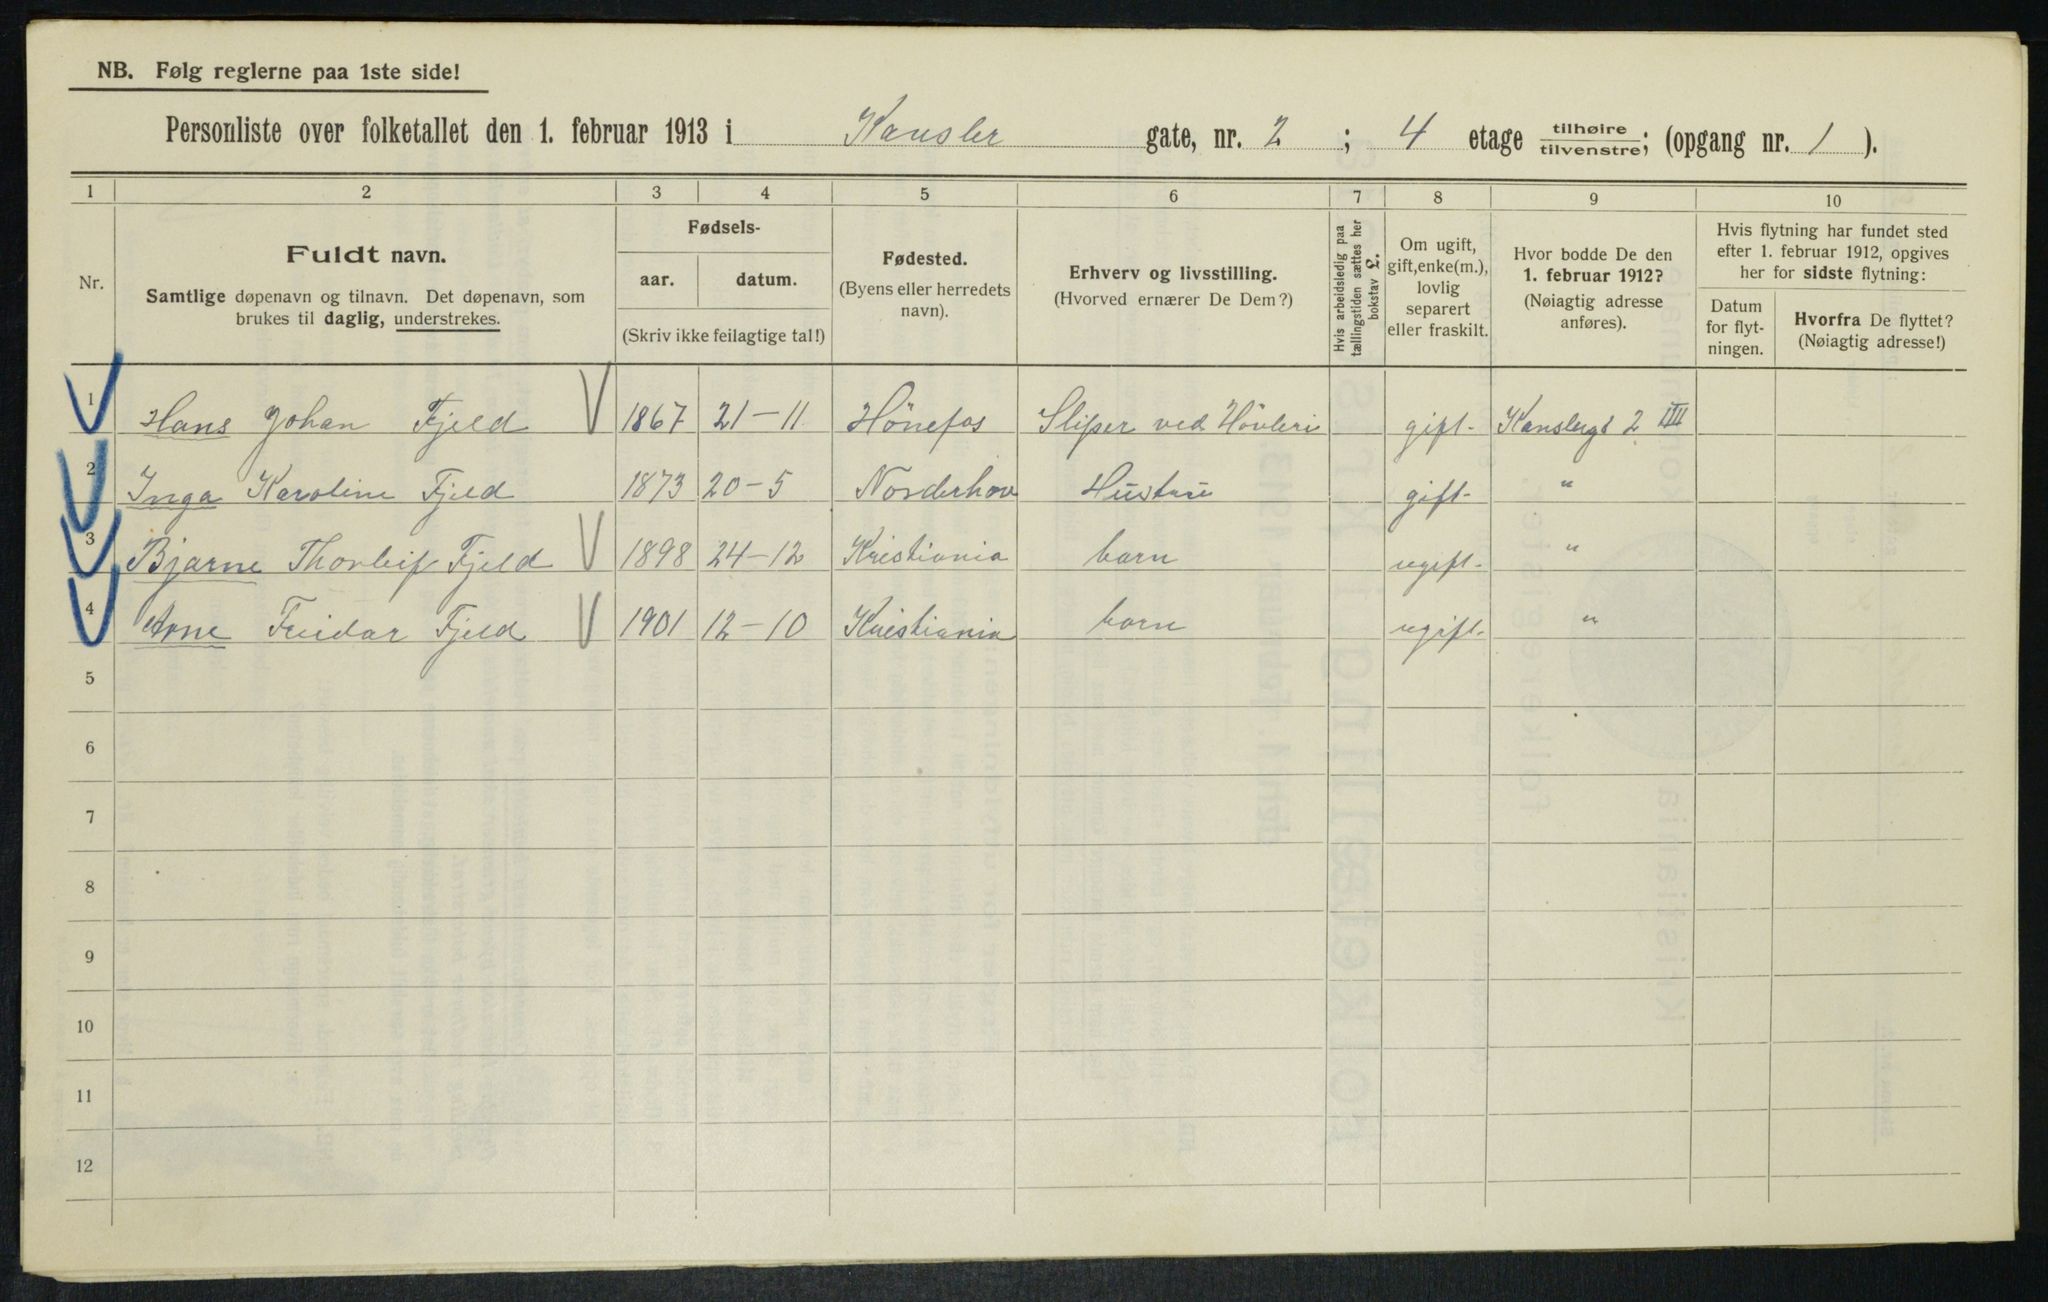 NB. Følg reglerne paa 1ste side!
Personliste over folketallet den 1. februar 1913 i Kansler gate, nr. 2 ; 4 etage tilhøire/tilvenstre; (opgang nr. 1 ).
1 2 3 4 5 6 7 8 9 10
Nr.
Fuldt navn.
Samtlige døpenavn og tilnavn. Det døpenavn, som
brukes til daglig, understrekes.
Fødsels-
aar. datum.
(Skriv ikke feilagtige tal!)
Fødested.
(Byens eller herredets
navn).
Erhverv og livsstilling.
(Hvorved ernærer De Dem?)
Hvis arbeidsledig paa
tællingstiden sættes her
bokstav L.
Om ugift,
gift, enke(m.),
lovlig
separert
eller fraskilt.
Hvor bodde De den
1. februar 1912?
(Nøiagtig adresse
anføres).
Hvis flytning har fundet sted
efter 1. februar 1912, opgives
her for sidste flytning:
Datum
for flyt-
ningen.
Hvorfra De flyttet?
(Nøiagtig adresse!)
1 Hans Johan Fjeld 1867 21-11 Hönefos Sliper ved Hövleri gift. Kanslergt 2 III
2 Inga Karoline Fjeld 1873 20-5 Norderhov Hustru gift. "
3 Bjarne Thorleif Fjeld 1898 24-12 Kristiania barn ugift. "
4 Arne Freidar Fjeld 1901 12-10 Kristiania barn ugift. "
5
6
7
8
9
10
11
12